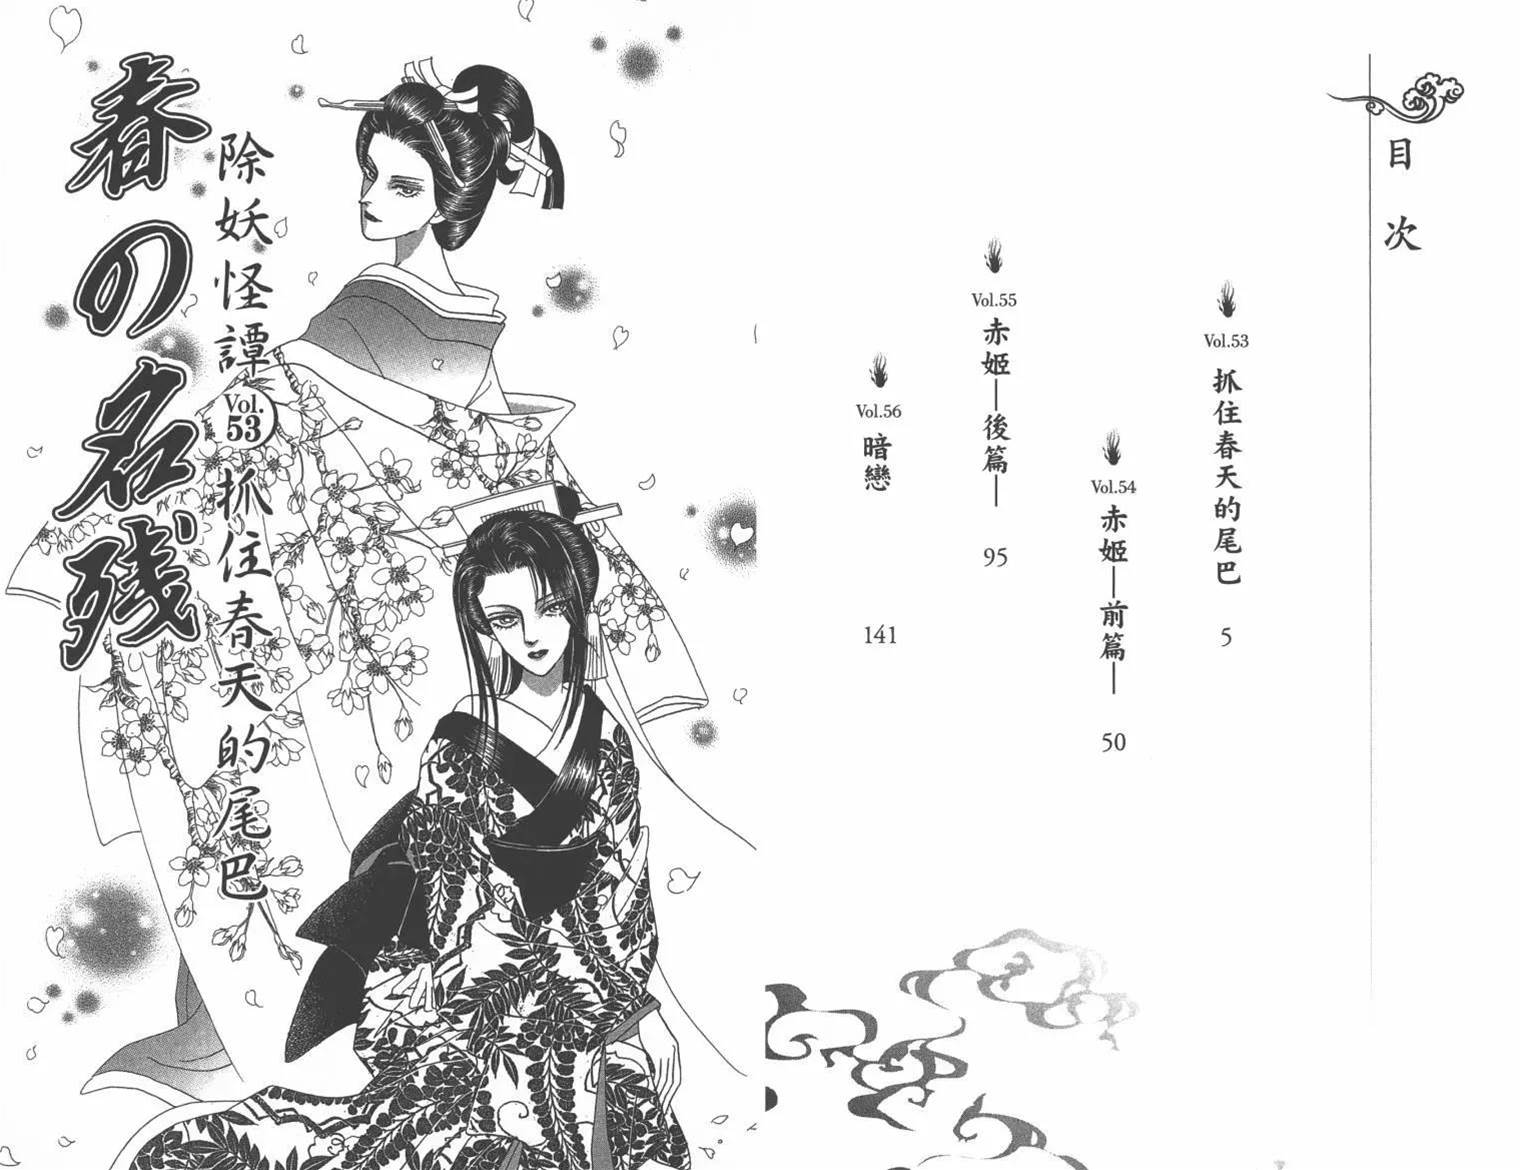 目次
Vol.53
抓住春天的尾巴
5
Vol.54
赤姬—前篇—
50
Vol.55
赤姬—後篇—
95
Vol.56
暗戀
141
除妖怪譚
Vol.
53
抓住春天的尾巴
春の名残